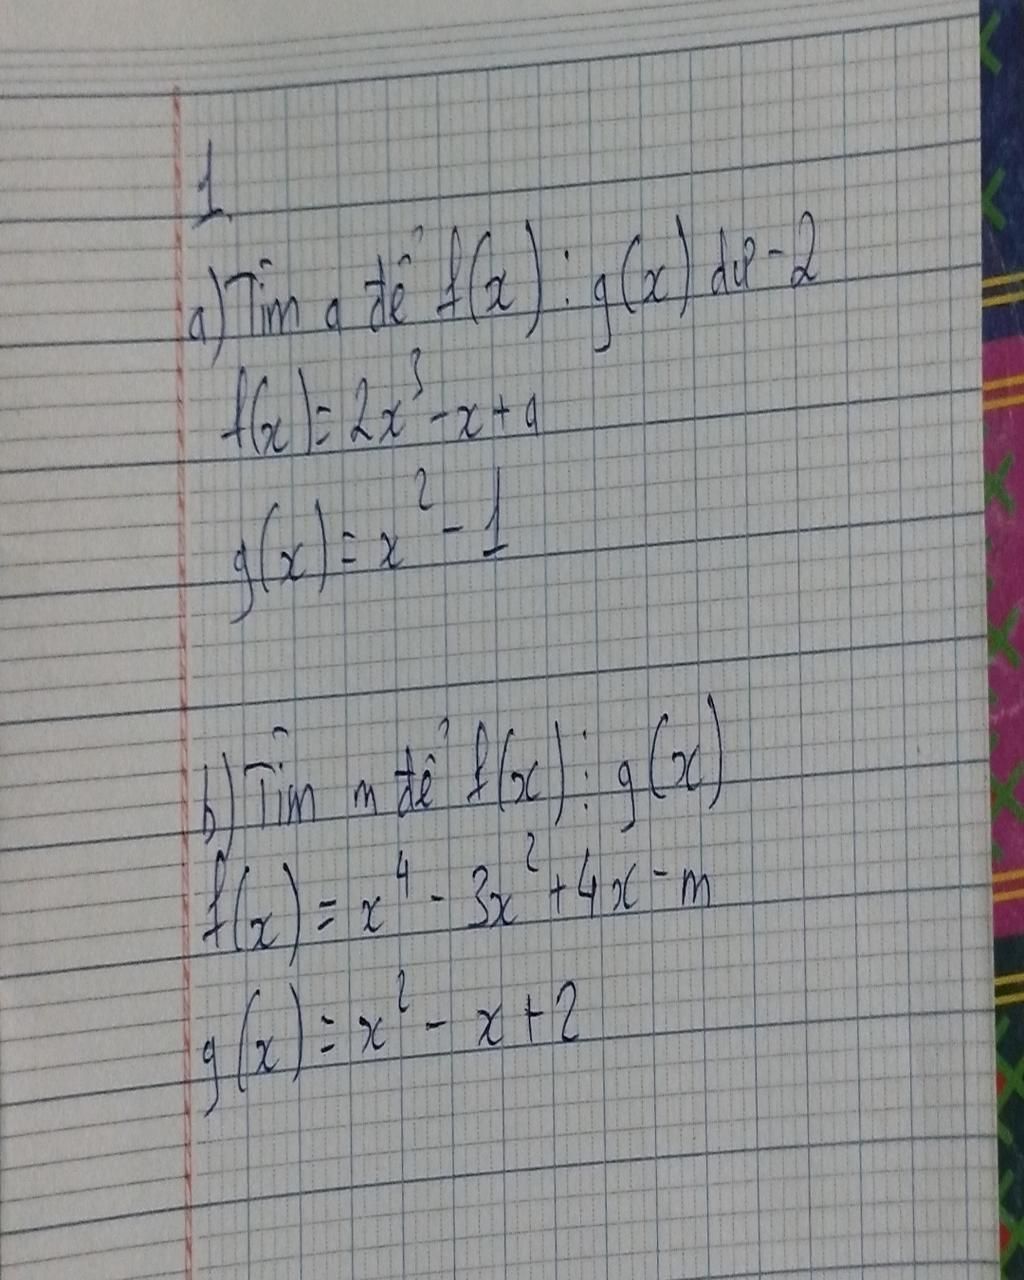 1.
a) Tìm a để f(x) : g(x) dư -2
f(x) = 2x³ - x + a
g(x) = x² - 1
b) Tìm m để f(x) ⋮ g(x)
f(x) = x⁴ - 3x² + 4x - m
g(x) = x² - x + 2